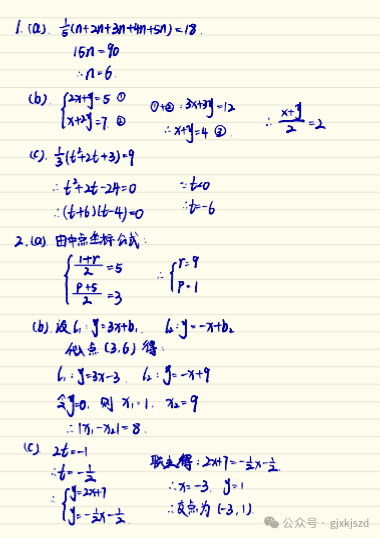 1. (a). 1/5(n+2n+3n+4n+5n)=18.
15n=90
∴n=6.
(b). { 2x+y=5 ①
x+2y=7. ②
①+②: 3x+3y=12
∴x+y=4 ③.
∴ (x+y)/2=2
(c). 1/3(t²+2t+3)=9
∴t²+2t-24=0
∴(t+6)(t-4)=0
∵t<0
∴t=-6
2.(a) 由中点坐标公式:
{ (1+r)/2=5
(p+5)/2=3
∴ { r=9
p=1
(b) 设 l₁: y=3x+b₁. l₂: y=-x+b₂
代入点 (3,6) 得:
l₁: y=3x-3. l₂: y=-x+9
令y=0, 则 x₁=1, x₂=9
∴|x₁-x₂|=8.
(c) 2t=-1
∴t=-1/2
∴ { y=2x+7
y=-1/2x-1/2.
联立得: 2x+7=-1/2x-1/2.
∴x=-3, y=1
∴交点为(-3,1).
公众号 · gjxkjszd